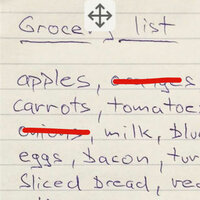 Grocery list
apples,
carrots, tomatoes
milk, blu
eggs, bacon, tur
Sliced bread, ve